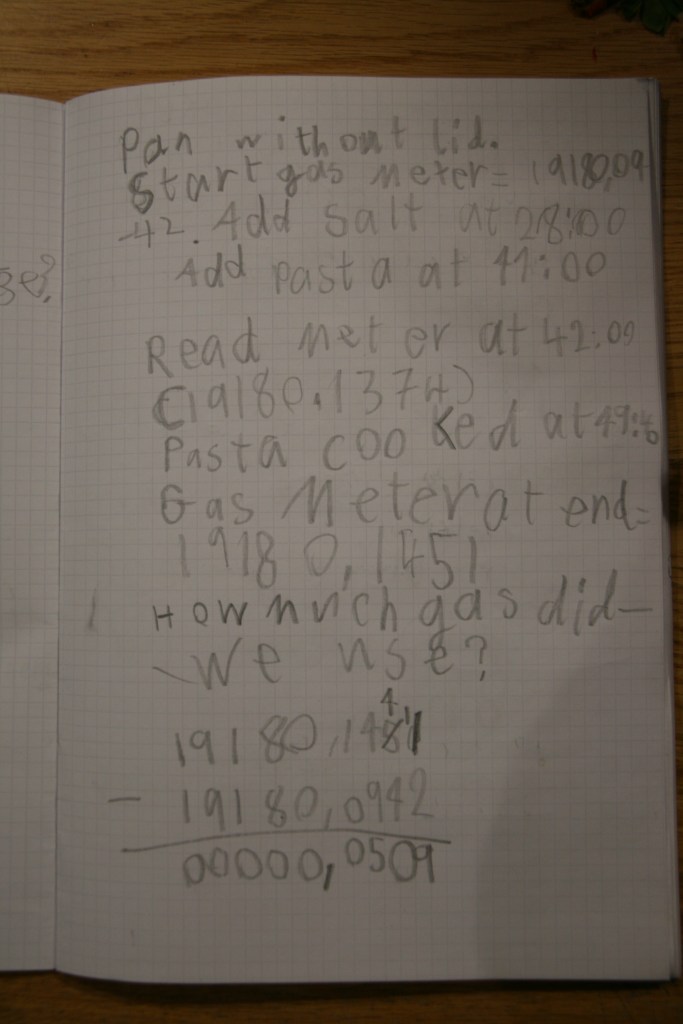 Pan without lid.
Start gas meter= 19180,09
-42. Add salt at 28:00
Add pasta at 41:00
Read meter at 42:00
(19180.1374)
Pasta cooked at
Gas Meter at end=
19180,1451
How much gas did-
-we use?
4
19180,1451
- 19180,0942
00000,0509